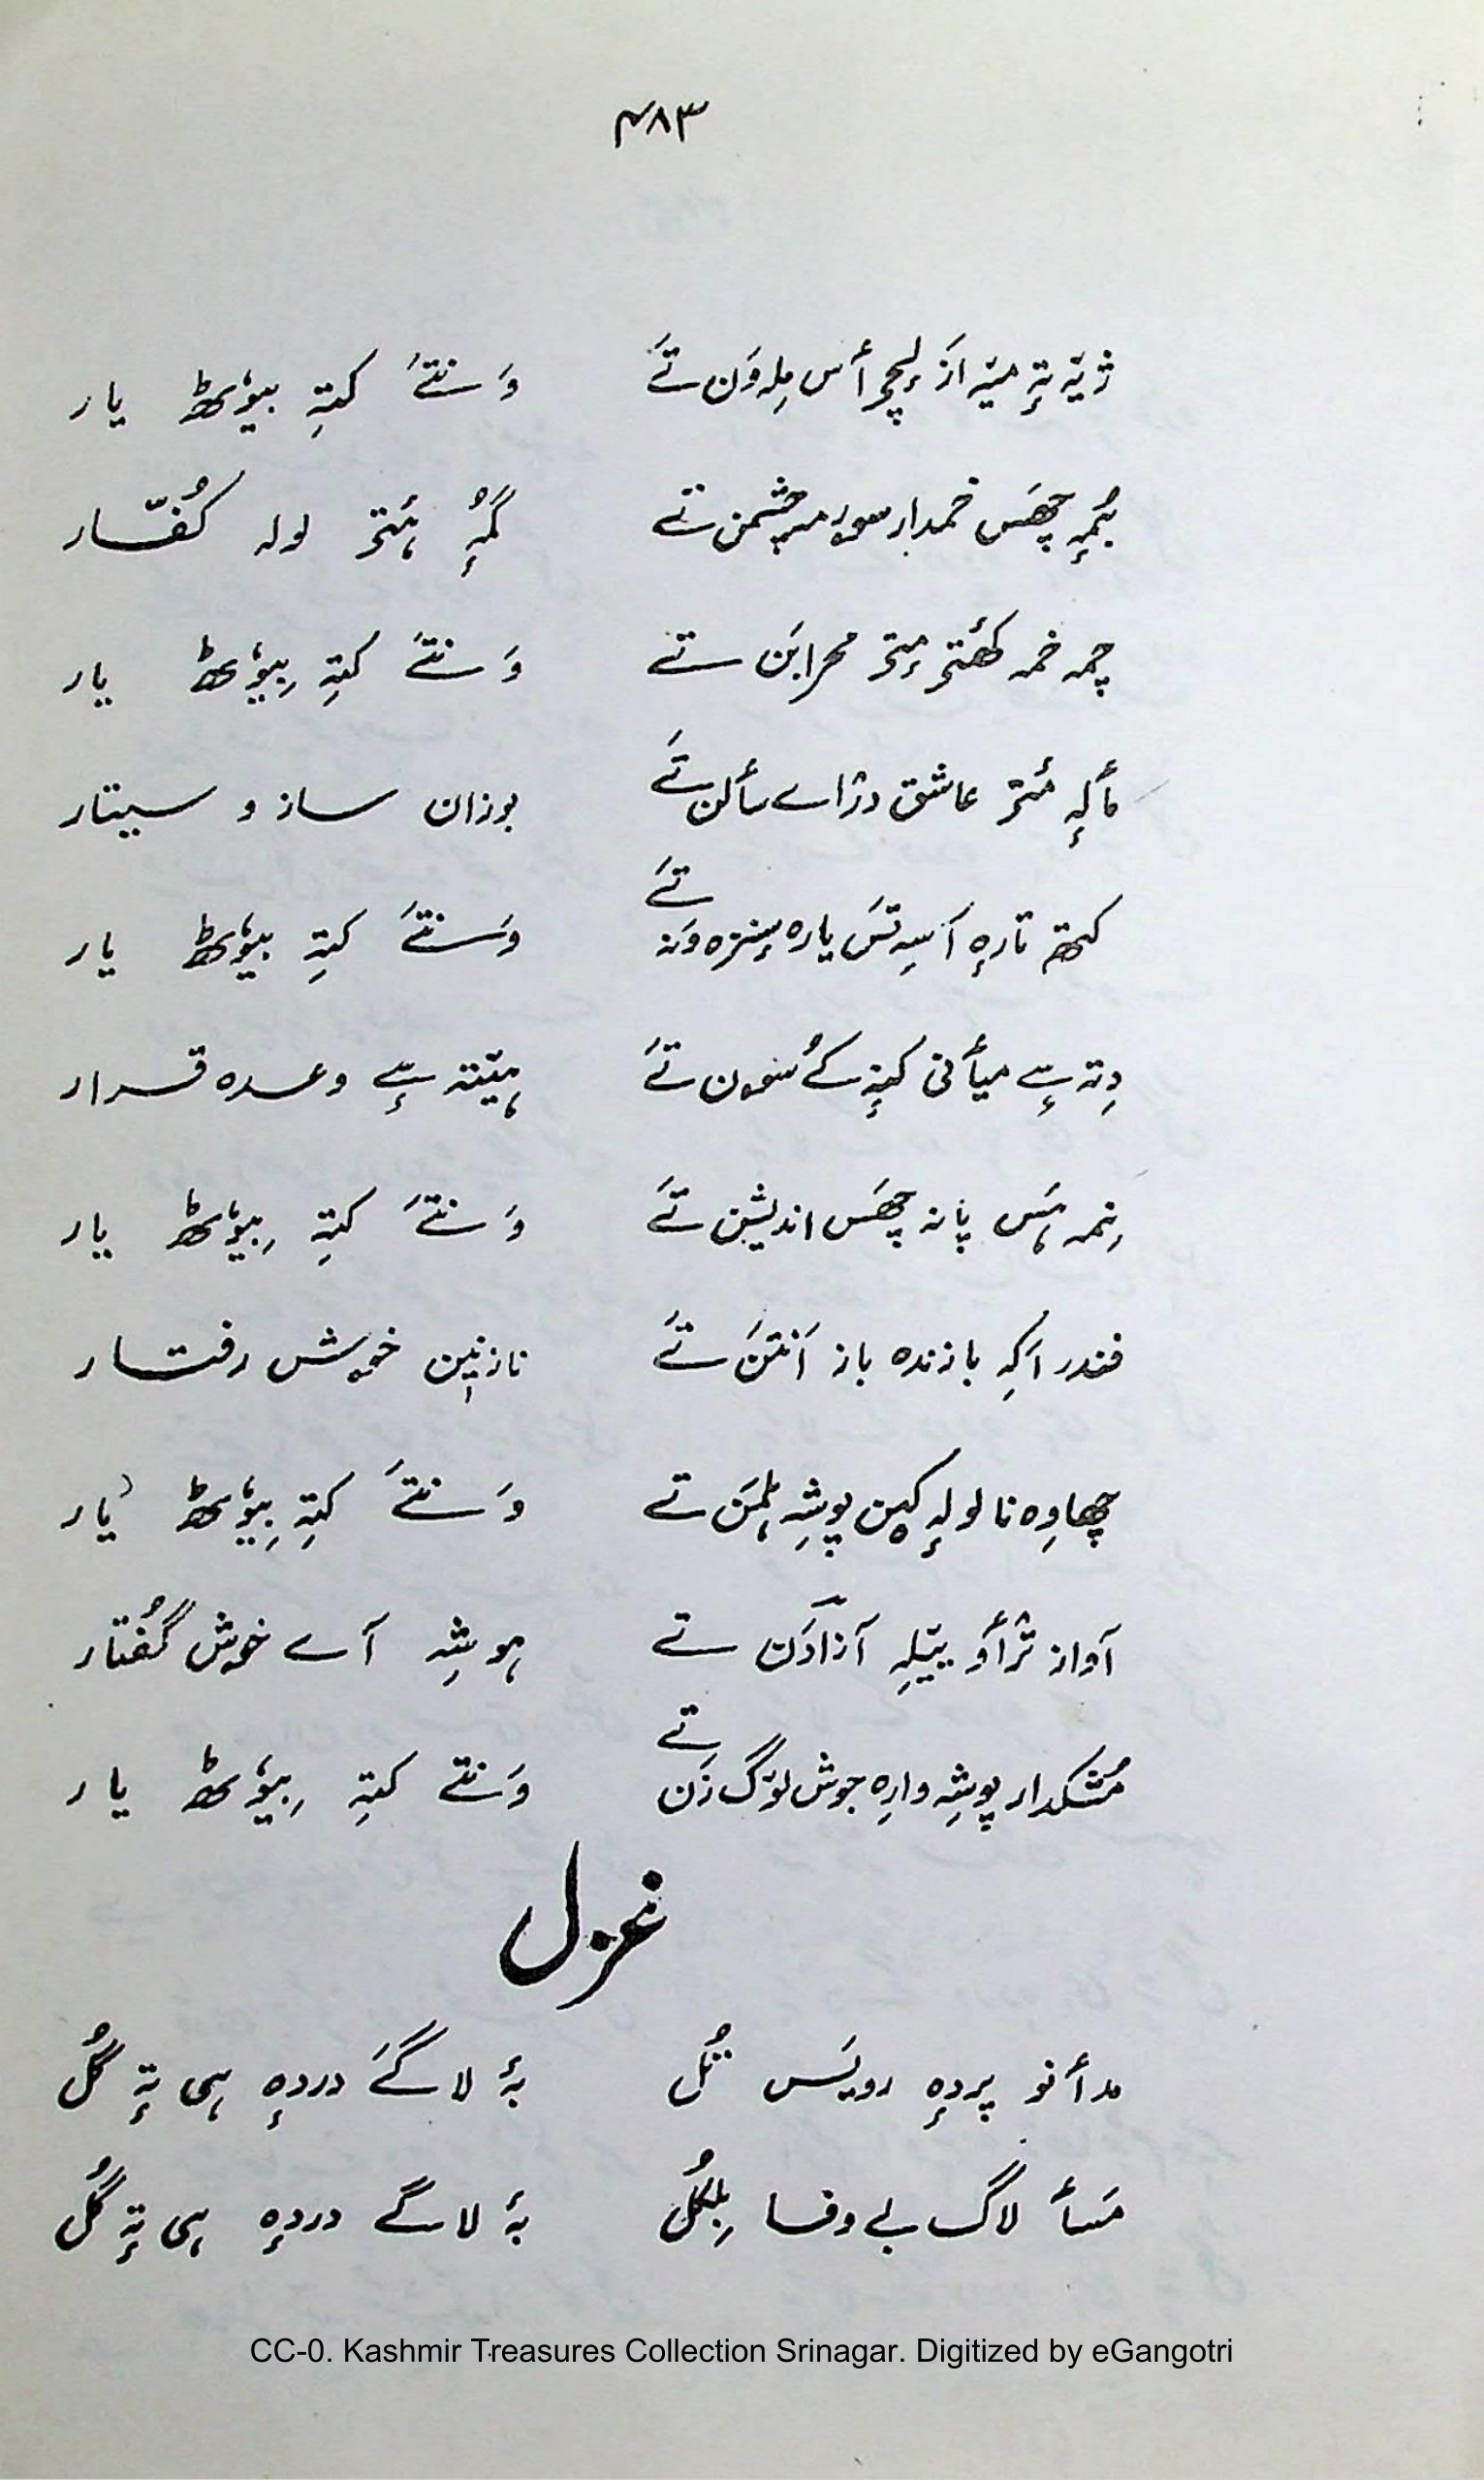 ۴۸۳
ژیہٚ تہٕ میہٚ اَز لیٖچر أس مِلہ وَن تےَ وَنتےَ کتہِ بیوٗٹھ یار
بُمہٕ چھَس خمدار سورمہ چشمن تے کَمہِ ہٮ۪تر لولہ کُفّار
چمہ خمہ کھٔتر مٔتر محرابَن تے وَنتےَ کتہِ بیوٗٹھ یار
مألہٕ مٔتر عاشق درٛاے سألن تےَ بوزان ساز و سیتار
کتھ تارہٕ آسہِ تسَ یارہ سٕنزہ وَنہ تےَ وَنتےَ کتہِ بیوٗٹھ یار
دِتہ سےٕ میأنی کینہٕ کُے سون تےَ ہیتہ سےٕ وعدہ قرار
نِمہ ہسَ پانہ چھَس اندیشن تےَ وَنتےَ کتہِ بیوٗٹھ یار
فندر اَکہِ بازندہ باز اَنتن تےَ نازنین خوش رفتار
چھاوِہ نا لولہٕ کین پوشہِ ٹلمَن تے وَنتےَ کتہِ بیوٗٹھ یار
آواز ترٛأو ییٚلہِ آزادَن تے ہوشہِ آے خوش گُفتار
مُشکدار پوشہِ وارہِ جوش لوٚگ زَن تے وَنتے کتہِ بیوٗٹھ یار
غزل
مدأنو پردہٕ رویَس تُل بہٕ لاگےَ دردہٕ ہی تہٕ گُل
مَسأ لاگ بے وفا بِلکُل بہٕ لاگے دردہٕ ہی تہٕ گُل
CC-0. Kashmir Treasures Collection Srinagar. Digitized by eGangotri